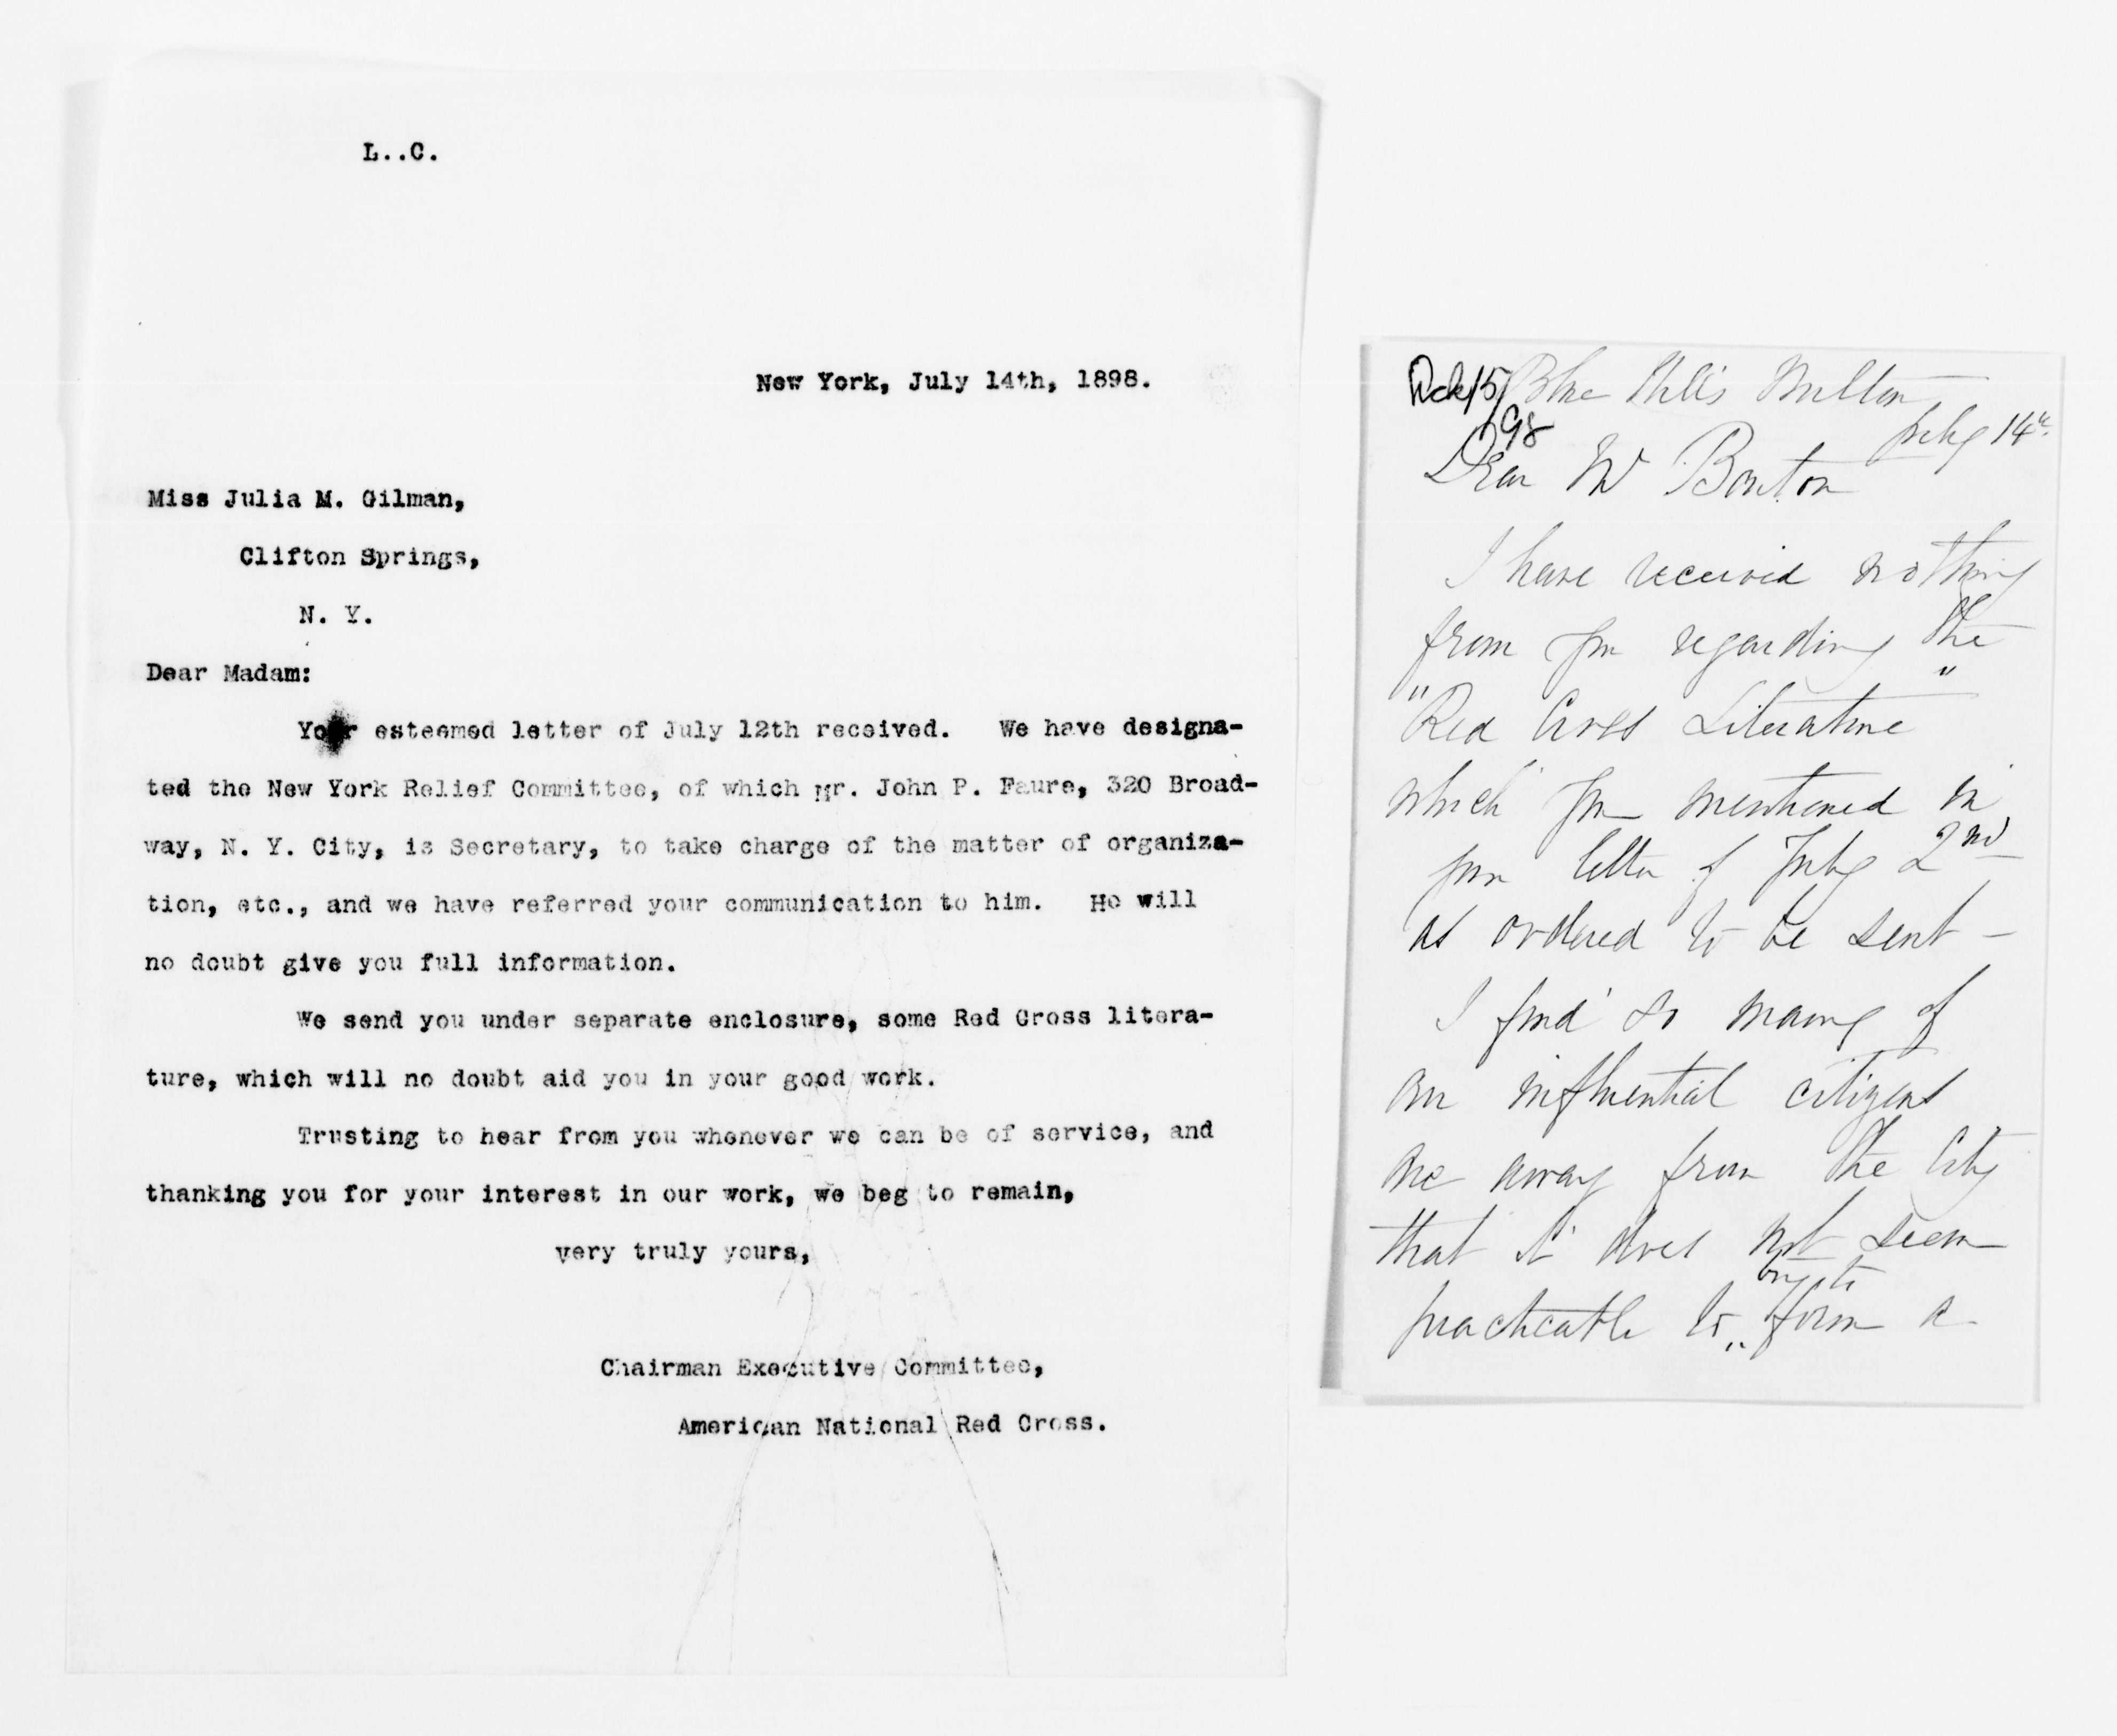 L..C.
New York, July 14th, 1898.
Miss Julia M. Gilman,
Clifton Springs,
N. Y.
Dear Madam:
Your esteemed letter of July 12th received. We have designa-
ted the New York Relief Committee, of which Mr. John P. Faure, 320 Broad-
way, N. Y. City, is Secretary, to take charge of the matter of organiza-
tion, etc., and we have referred your communication to him. He will
no doubt give you full information.
We send you under separate enclosure, some Red Cross litera-
ture, which will no doubt aid you in your good work.
Trusting to hear from you whenever we can be of service, and
thanking you for your interest in our work, we beg to remain,
very truly yours,
Chairman Executive Committee,
American National Red Cross.
15/98
Blue Hills Milton
July 14th
Dear Mr Barton
I have received nothing
from you regarding the
"Red Cross Literature"
which you mentioned in
your letter of July 2nd
as ordered to be sent –
I find so many of
our influential citizens
are away from the City
that it does not seem
practicable to form a